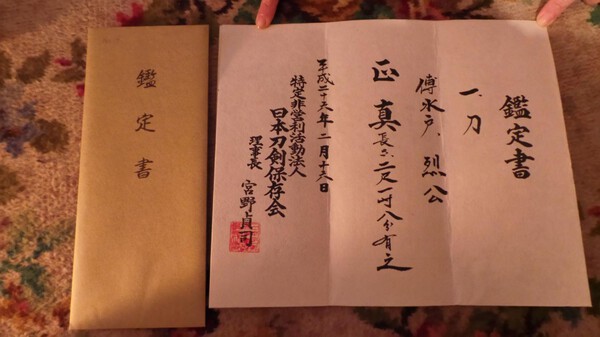 鑑定書
一、刀
傳水戸、烈公
正真 長サ二尺一寸八分有之
平成二十六年二月十六日
特定非営利活動法人
日本刀剣保存会
理事長 宮野貞司
鑑定書